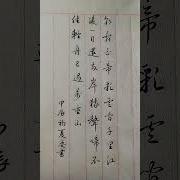 朝辭白帝彩雲間千里江
陵一日還兩岸猿聲啼不
住輕舟已過萬重山
甲辰初夏書